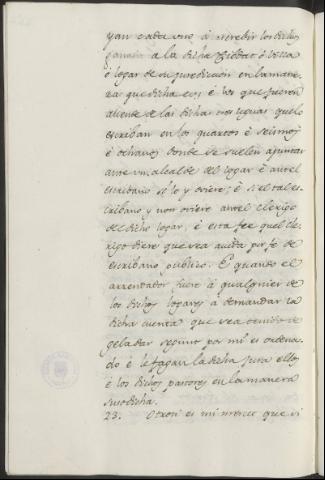 yan cada uno á screbir los dichos
ganados a la dicha Cibdat ó villa
ó logar de su jurediccion en la mane-
ra que dicha es; é los que fueren
aliende de las dichas tres leguas que lo
escriban en los quartos é seismos
é ochavos donde se suelen ayuntar
ante un alcalde del logar é ante el
escribano si lo y oviere; é si el tal es-
cribano y non oviere ante el clerigo
del dicho logar, é esta fee quel cle-
rigo diere que sea avida por fe de
escribano publico. E quando el
arrendador fuere á qualquier de
los dichos logares á demandar la
dicha cuenta que sea tenido de
gela dar segund por mi es ordena-
do é le fagan la dicha jura ellos
é los dichos pastores en la manera
susodicha.
23. Otrosi es mi merced que si